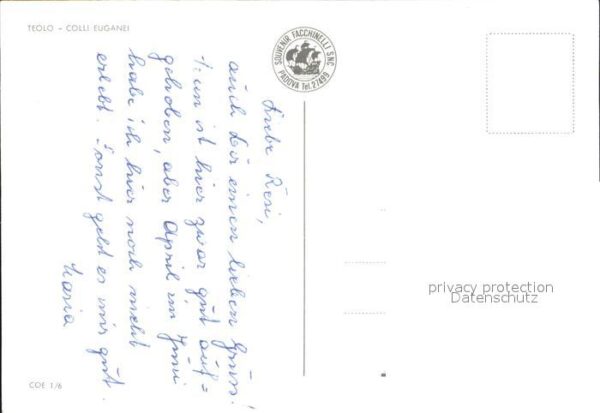 TEOLO - COLLI EUGANEI
SOUVENIR FACCHINELLI SNC
PADOVA Tel. 27499
Liebe Resi,
auch Dir einen lieben Gruss!
ist hier zwar gut auf=
gehoben, aber April im Juni
habe ich hier noch nicht
erlebt. Sonst geht es mir gut.
Maria
privacy protection
Datenschutz
COE 1/6